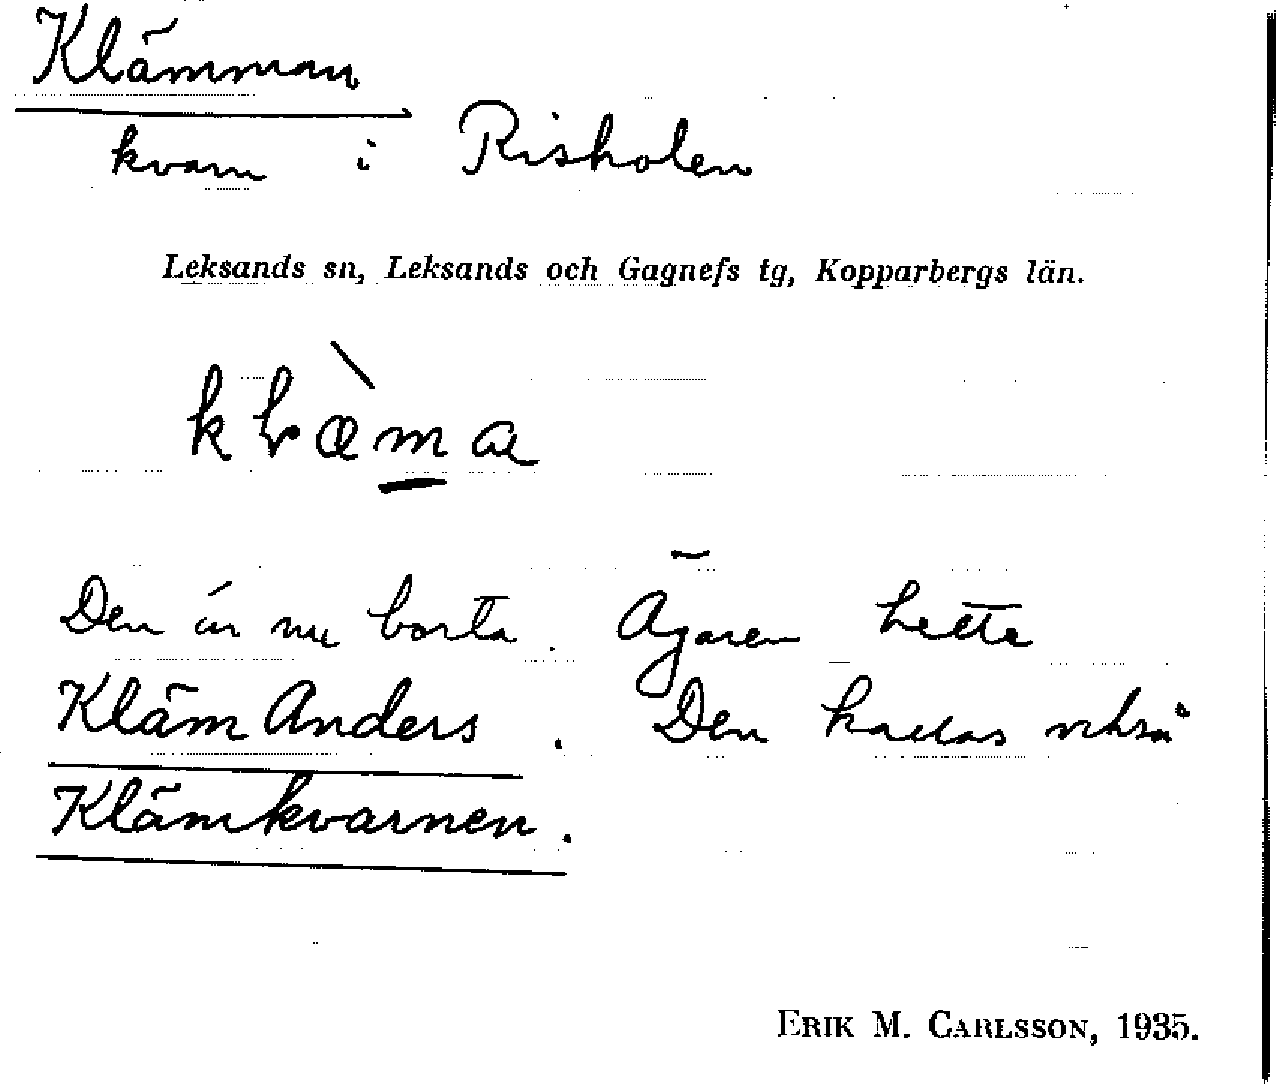 Klämman
kvarn i Risholen
Leksands sn, Leksands och Gagnefs tg, Kopparbergs län.
Den är nu borta. Ägaren hette
Kläm Anders. Den kallas också
Klämkvarnen.
ERIK M. CARLSSON, 1935.